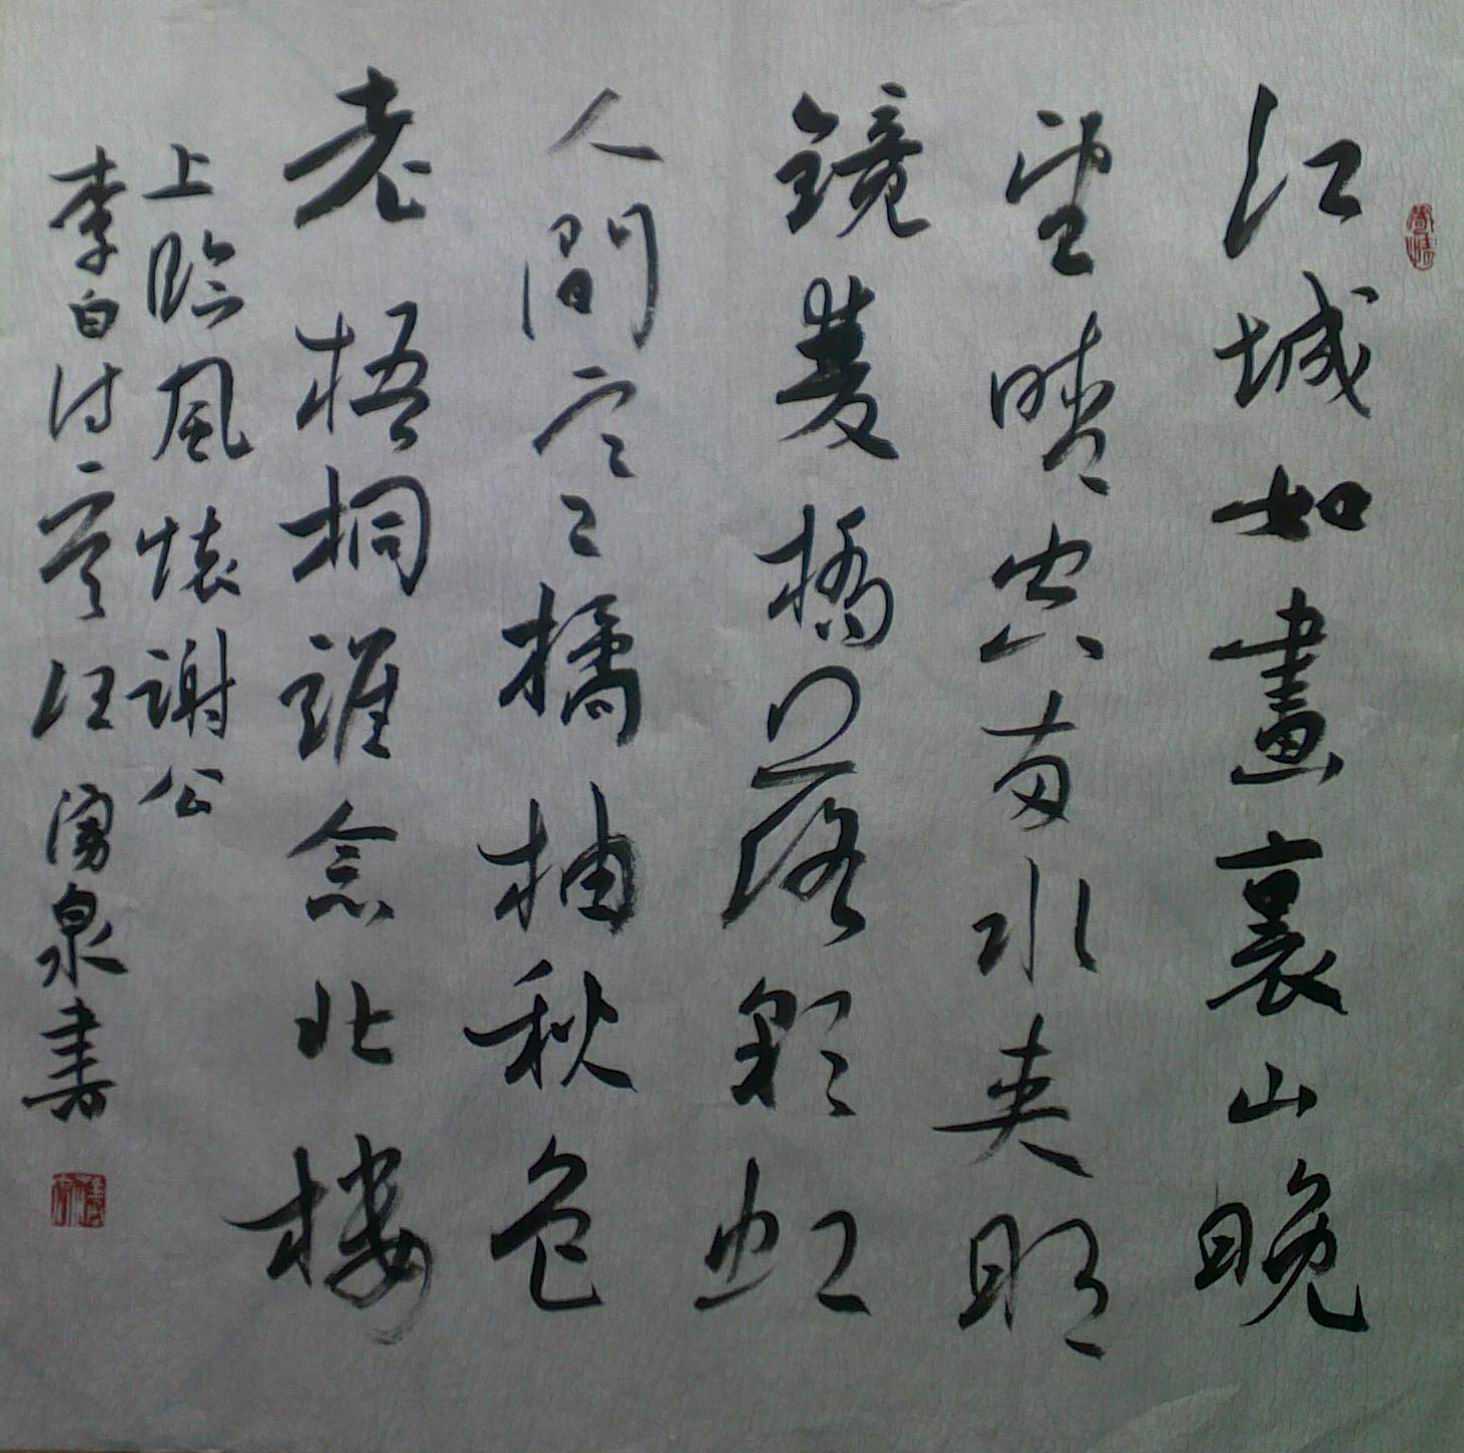 江城如畫裏山晚
望晴空兩水夾明
鏡雙橋落彩虹
人間寒橘柚秋色
老梧桐誰念北樓
上臨風懷謝公
李白诗 汪湧泉書